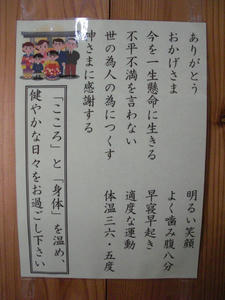 ありがとう
おかげさま
今を一生懸命に生きる
不平不満を言わない
世の為人の為につくす
神さまに感謝する
明るい笑顔
よく噛み腹八分
早寝早起き
適度な運動
体温三六・五度
「こころ」と「身体」を温め、
健やかな日々をお過ごし下さい